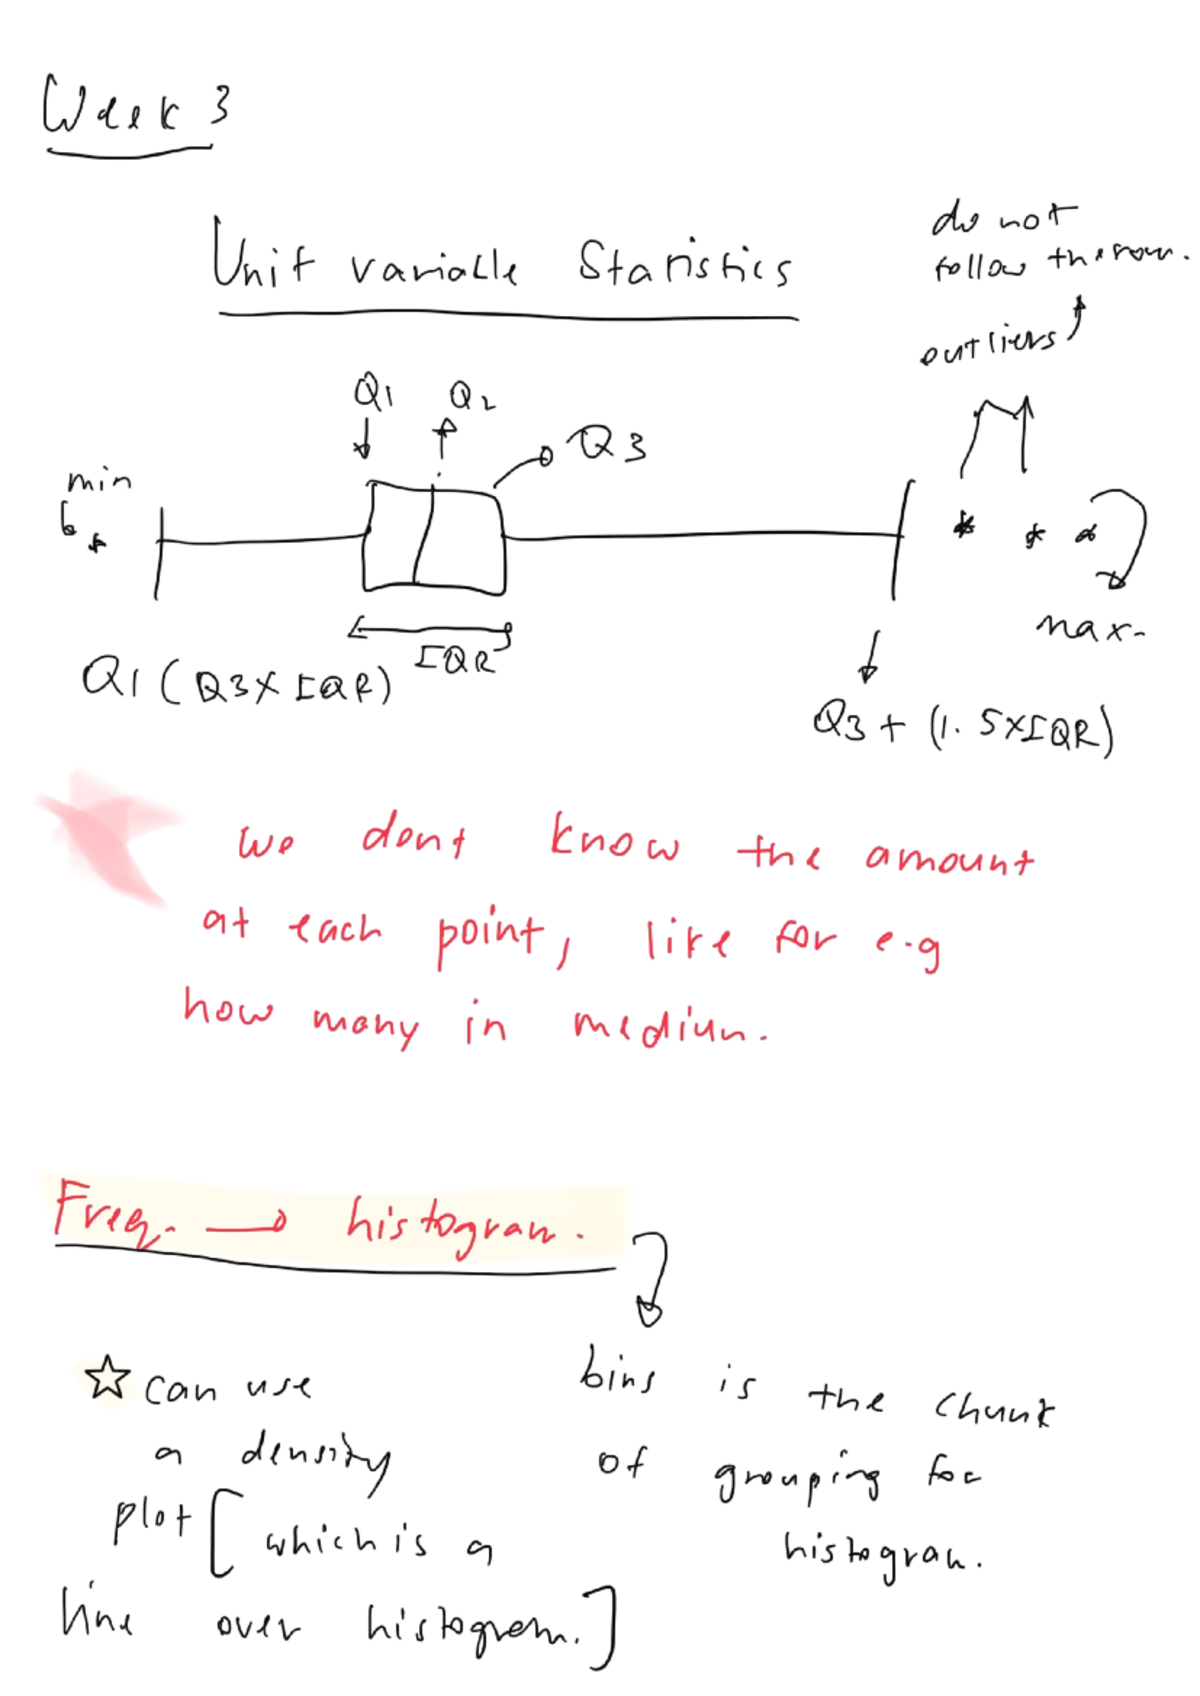 Week 3
Unit variable Statistics
do not
follow the row.
outliers
Q1
Q2
Q3
min
max.
IQR
Q1 (Q3 x IQR)
Q3 + (1.5xIQR)
we dont know the amount
at each point, like for e.g
how many in medium.
Freq. → histogram.
☆ can use
a density
plot [which is a
line over histogram.]
bins is the chunk
of grouping for
histogram.